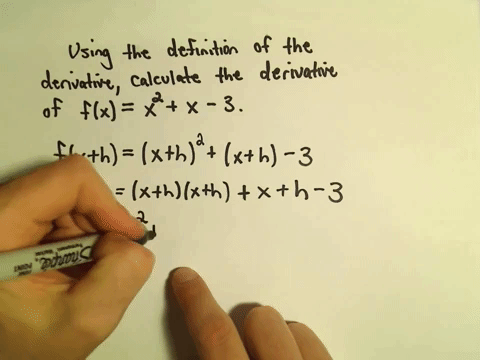 Using the definition of the
derivative, calculate the derivative
of f(x) = x² + x - 3.
f(x+h) = (x+h)² + (x+h) - 3
= (x+h)(x+h) + x + h - 3
² +
Sharpie